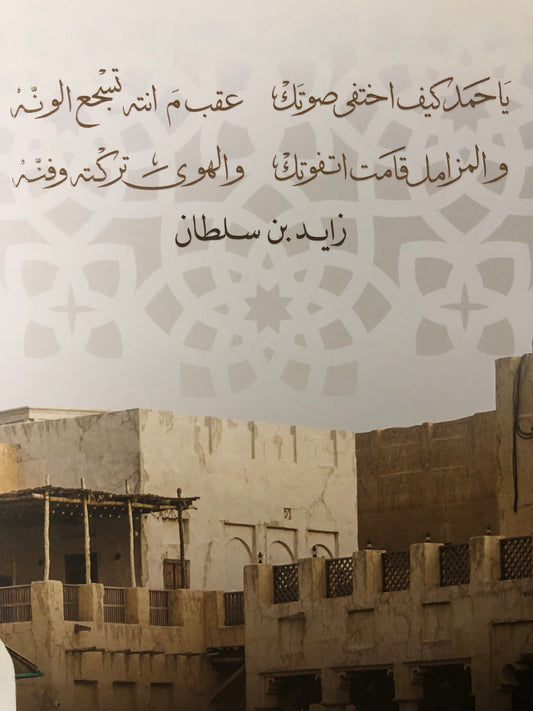 يَا حَمَد كيف اختفى صوتكْ عقب مَ انته تسْجع الونّهْ
والمزامل قامَت اتفوتكْ والهوى تركته وفنّهْ
زايد بن سلطان